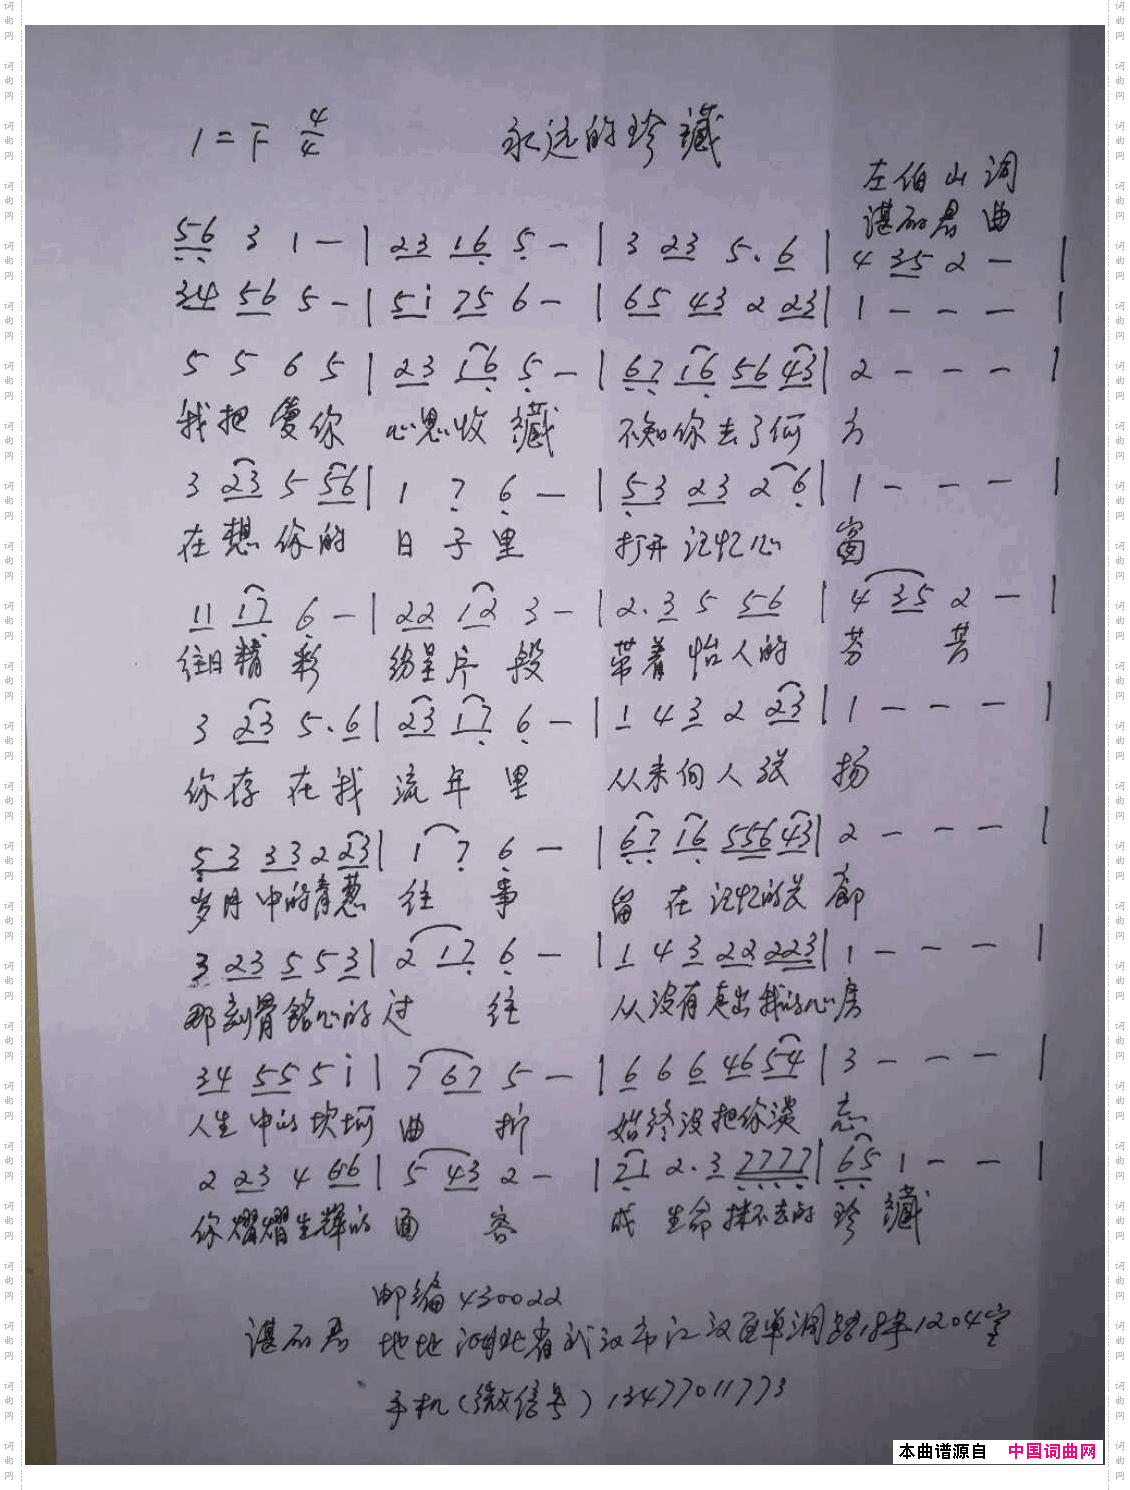 1=F 4/4 永远的珍藏
左伯山 词
谌丽君 曲
56 3 1 — | 23 16 5 — | 3 23 5. 6 | 4 35 2 — |
34 56 5 — | 5i 75 6 — | 65 43 2 23 | 1 — — — |
5 5 6 5 | 23 16 5 — | 67 16 56 43 | 2 — — — |
我把爱你 心思收藏 不知你去了何方
3 23 5 56 | 1 7 6 — | 53 23 2 6 | 1 — — — |
在想你的 日子里 打开记忆心窗
11 17 6 — | 22 12 3 — | 2. 3 5 56 | 4 35 2 — |
往日精彩 纷呈片段 带着怡人的芬芳
3 23 5. 6 | 23 17 6 — | 1 4 3 2 23 | 1 — — — |
你存在我 流年里 从未向人张扬
53 33 2 23 | 1 7 6 — | 67 16 556 43 | 2 — — — |
岁月中的青葱 往事 留在记忆的长廊
3 23 5 5 3 | 2 17 6 — | 1 4 3 22 223 | 1 — — — |
那刻骨铭心的过往 从没有走出我的心房
34 55 5 i | 7 67 5 — | 6 6 6 46 54 | 3 — — — |
人生中的坎坷 曲折 始终没把你淡忘
2 23 4 66 | 5 43 2 — | 71 2. 3 7777 | 65 1 — — |
你熠熠生辉的面容 成生命抹不去的珍藏
邮编 430022
谌丽君 地址 湖北省武汉市江汉区单洞路18号1204室
手机(微信号) 13477011773
本曲谱源自 中国词曲网